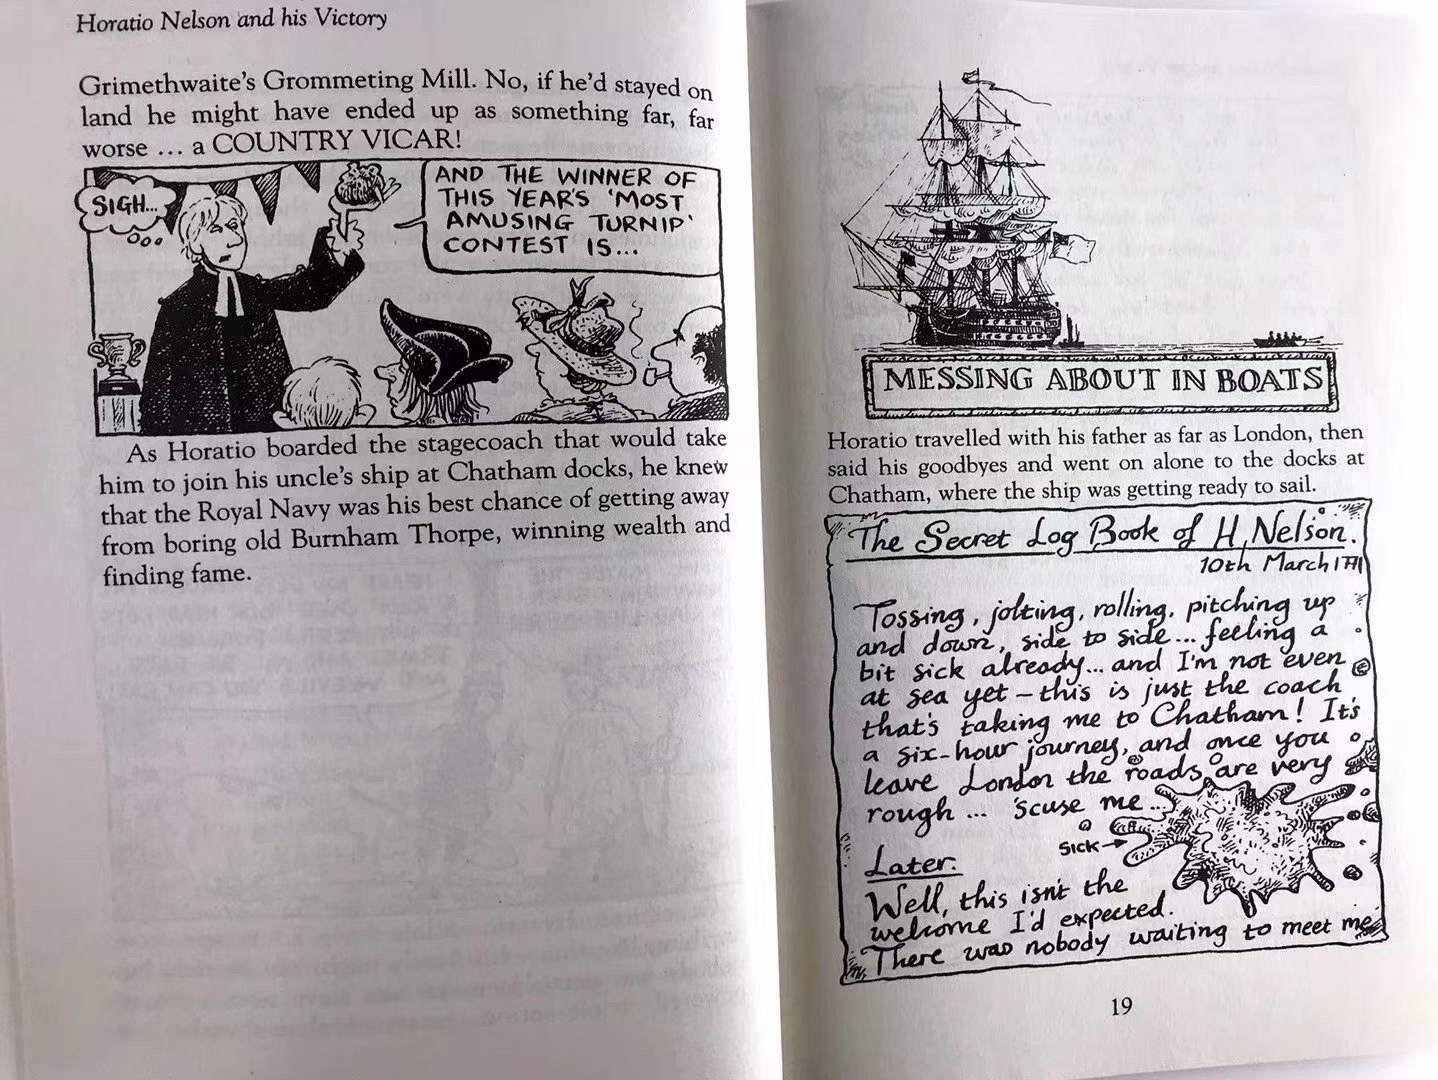 Horatio Nelson and his Victory
Grimethwaite's Grommeting Mill. No, if he'd stayed on
land he might have ended up as something far, far
worse ... a COUNTRY VICAR!
SIGH...
AND THE WINNER OF
THIS YEAR'S 'MOST
AMUSING TURNIP'
CONTEST IS...
As Horatio boarded the stagecoach that would take
him to join his uncle's ship at Chatham docks, he knew
that the Royal Navy was his best chance of getting away
from boring old Burnham Thorpe, winning wealth and
finding fame.
MESSING ABOUT IN BOATS
Horatio travelled with his father as far as London, then
said his goodbyes and went on alone to the docks at
Chatham, where the ship was getting ready to sail.
The Secret Log Book of H. Nelson.
10th March 1771
Tossing, jolting, rolling, pitching up
and down, side to side... feeling a
bit sick already... and I'm not even
at sea yet – this is just the coach
that's taking me to Chatham! It's
a six-hour journey, and once you
leave London the roads are very
rough ... 'scuse me...
SICK
Later:
Well, this isn't the
welcome I'd expected.
There was nobody waiting to meet me
19